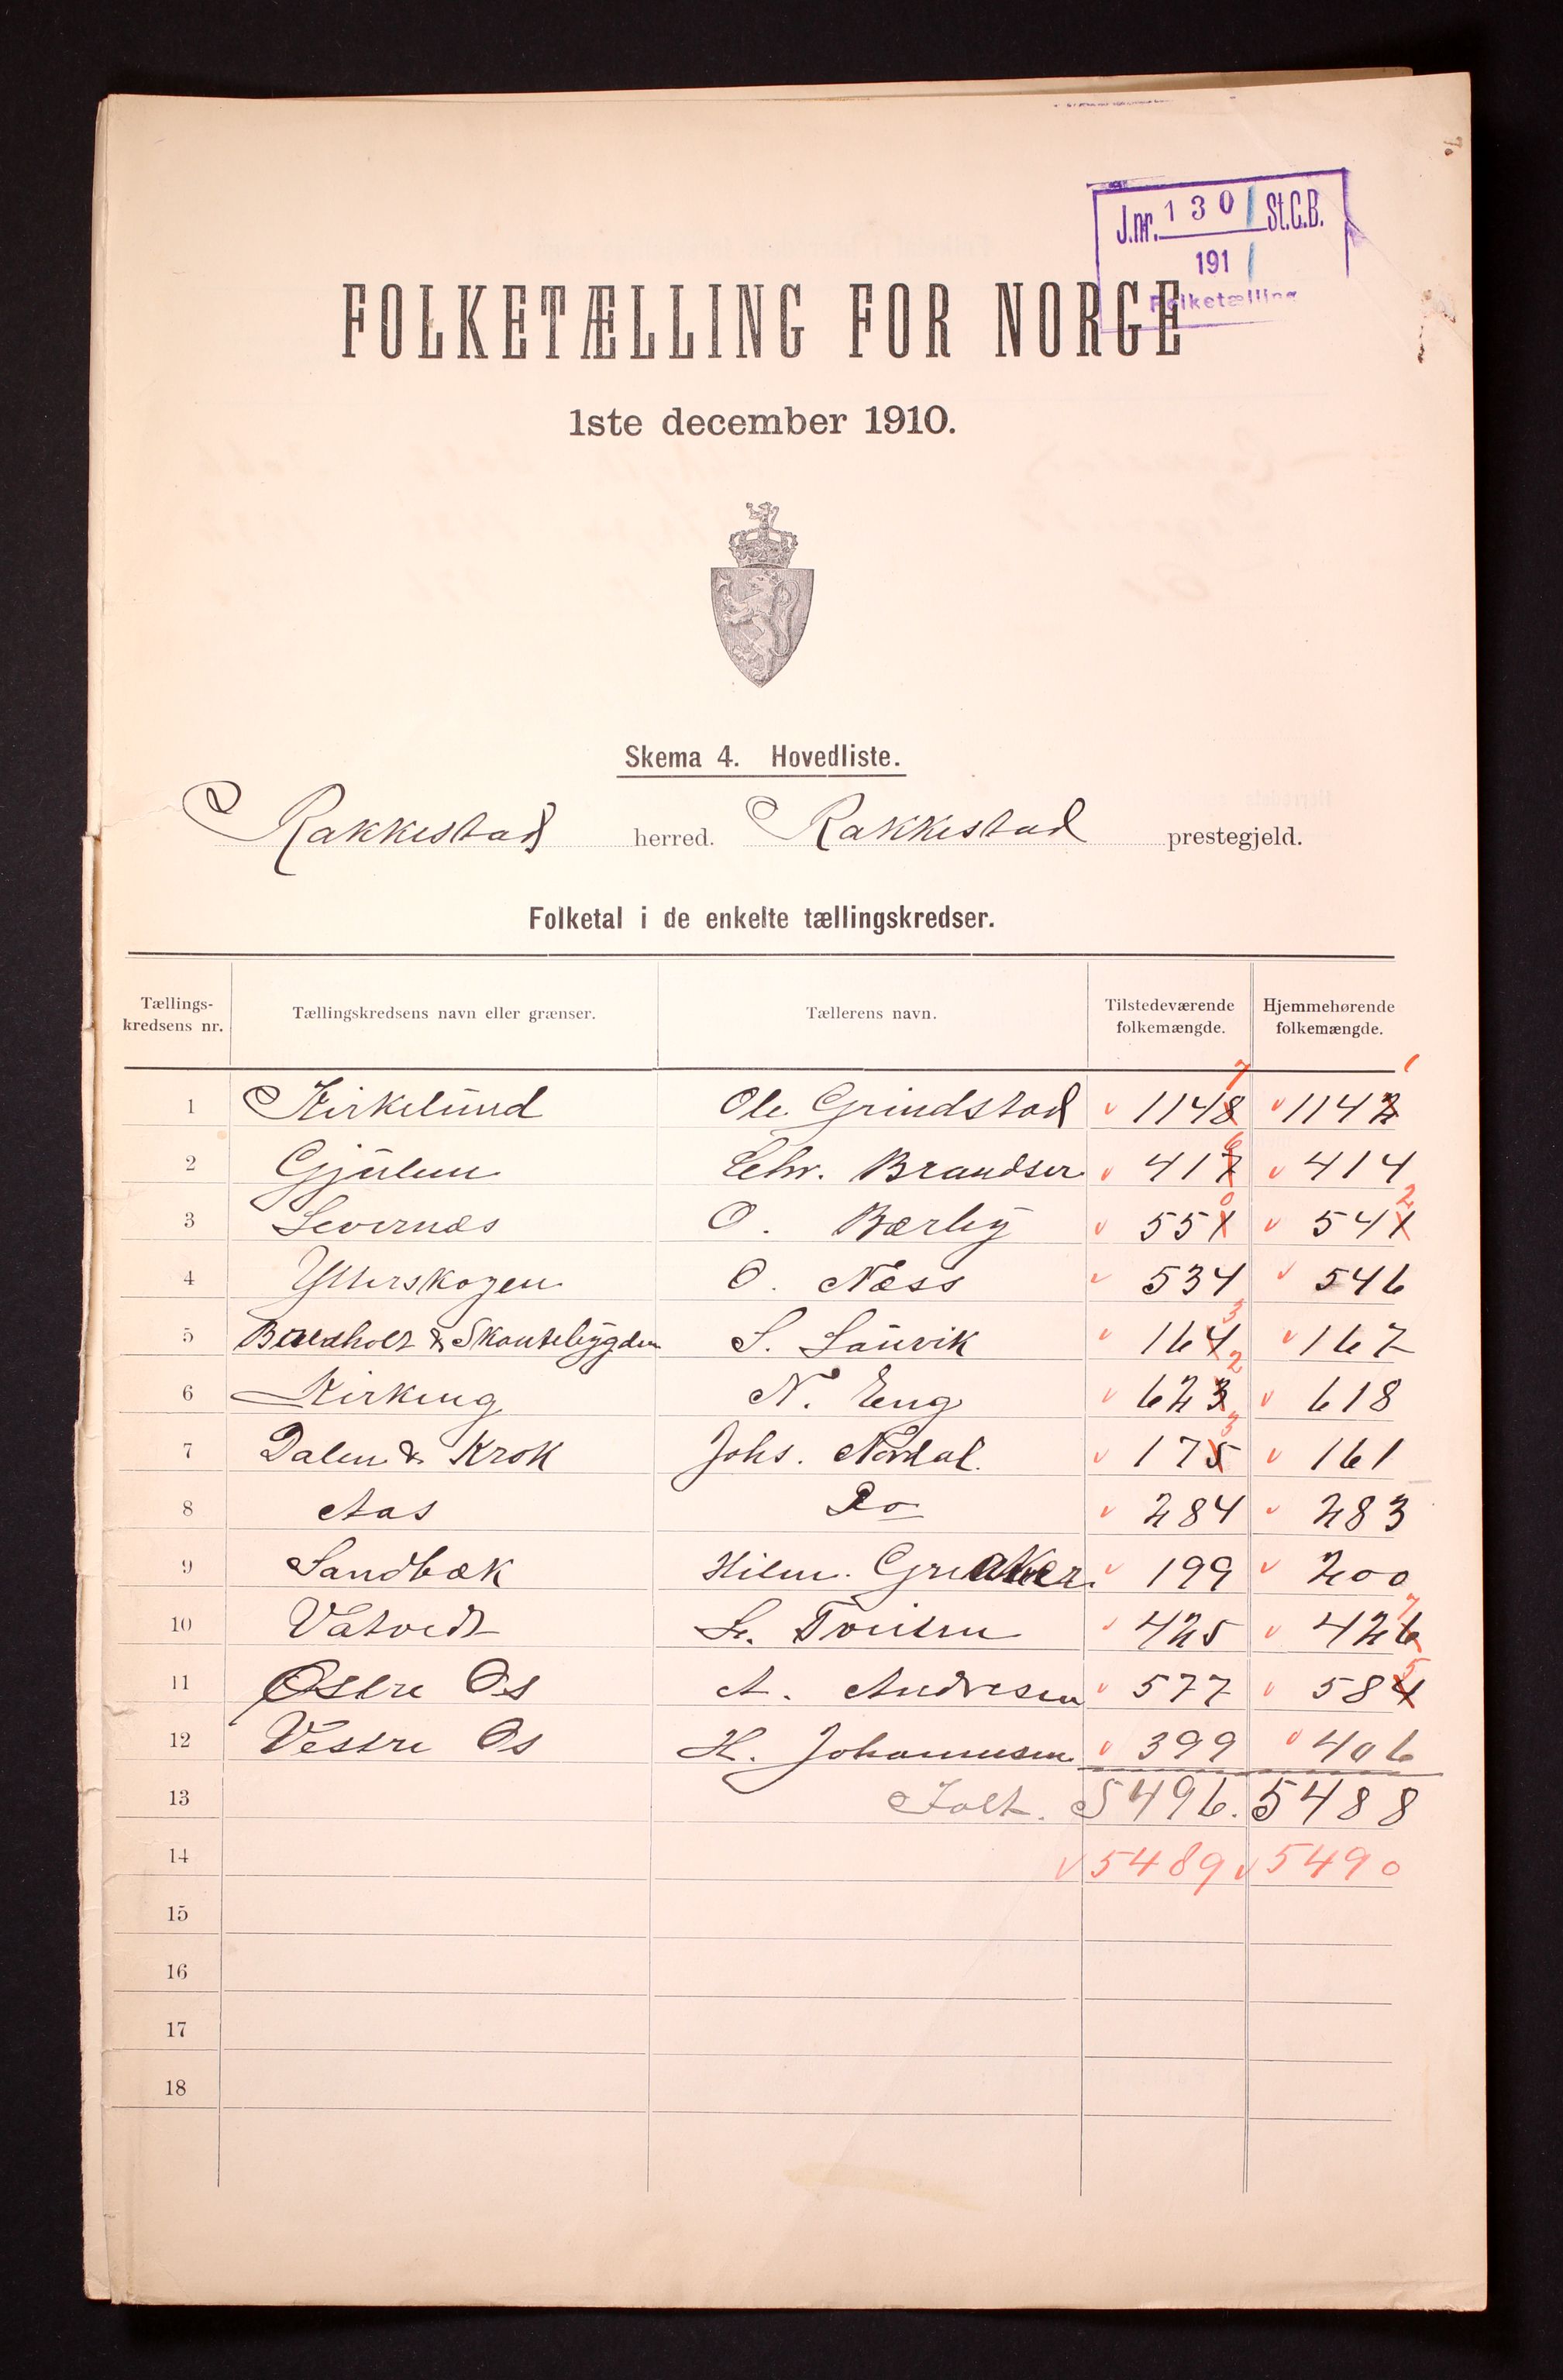 J.nr. 1301 St.C.B.
1911
Folketælling
FOLKETÆLLING FOR NORGE
1ste december 1910.
Skema 4. Hovedliste.
Rakkestad herred. Rakkestad prestegjeld.
Folketal i de enkelte tællingskredser.
Tællings-kredsens nr. Tællingskredsens navn eller grænser. Tællerens navn. Tilstedeværende folkemængde. Hjemmehørende folkemængde.
7 1
1 Kirkelund Ole Grindstad 1148 1142
6
2 Gjølen Chr. Brandser 417 414
0 2
3 Levernæs O. Bærby 551 541
4 Ytterskogen O. Næss 534 546
3
5 & Skautebygden S. Laurik 164 167
2
6 Kirkeng N. Eng 623 618
3
7 Dalen & Krok Johs. Nordal. 175 161
8 Aas Do 284 283
9 Sandbæk Hilm. Greaker. 199 200
7
10 Vatvedt L. 425 426
5
11 Østre Os A. Andresen 577 584
12 Vestre Os H. Johannesen 399 406
13 Tolt. 5496. 5488
14 5489 5490
15
16
17
18